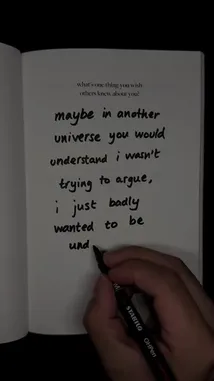 what's one thing you wish
others knew about you?
maybe in another
universe you would
understand i wasn't
trying to argue,
i just badly
wanted to be
und
STABILO
OHPen